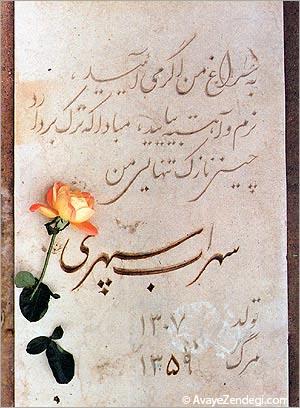 به سراغ من اگر می آیید،
نرم و آهسته بیایید، مبادا که ترک بردارد
چینی نازک تنهایی من
سهراب سپهری
تولد ۱۳۰۷
مرگ ۱۳۵۹
© AvayeZendegi.com